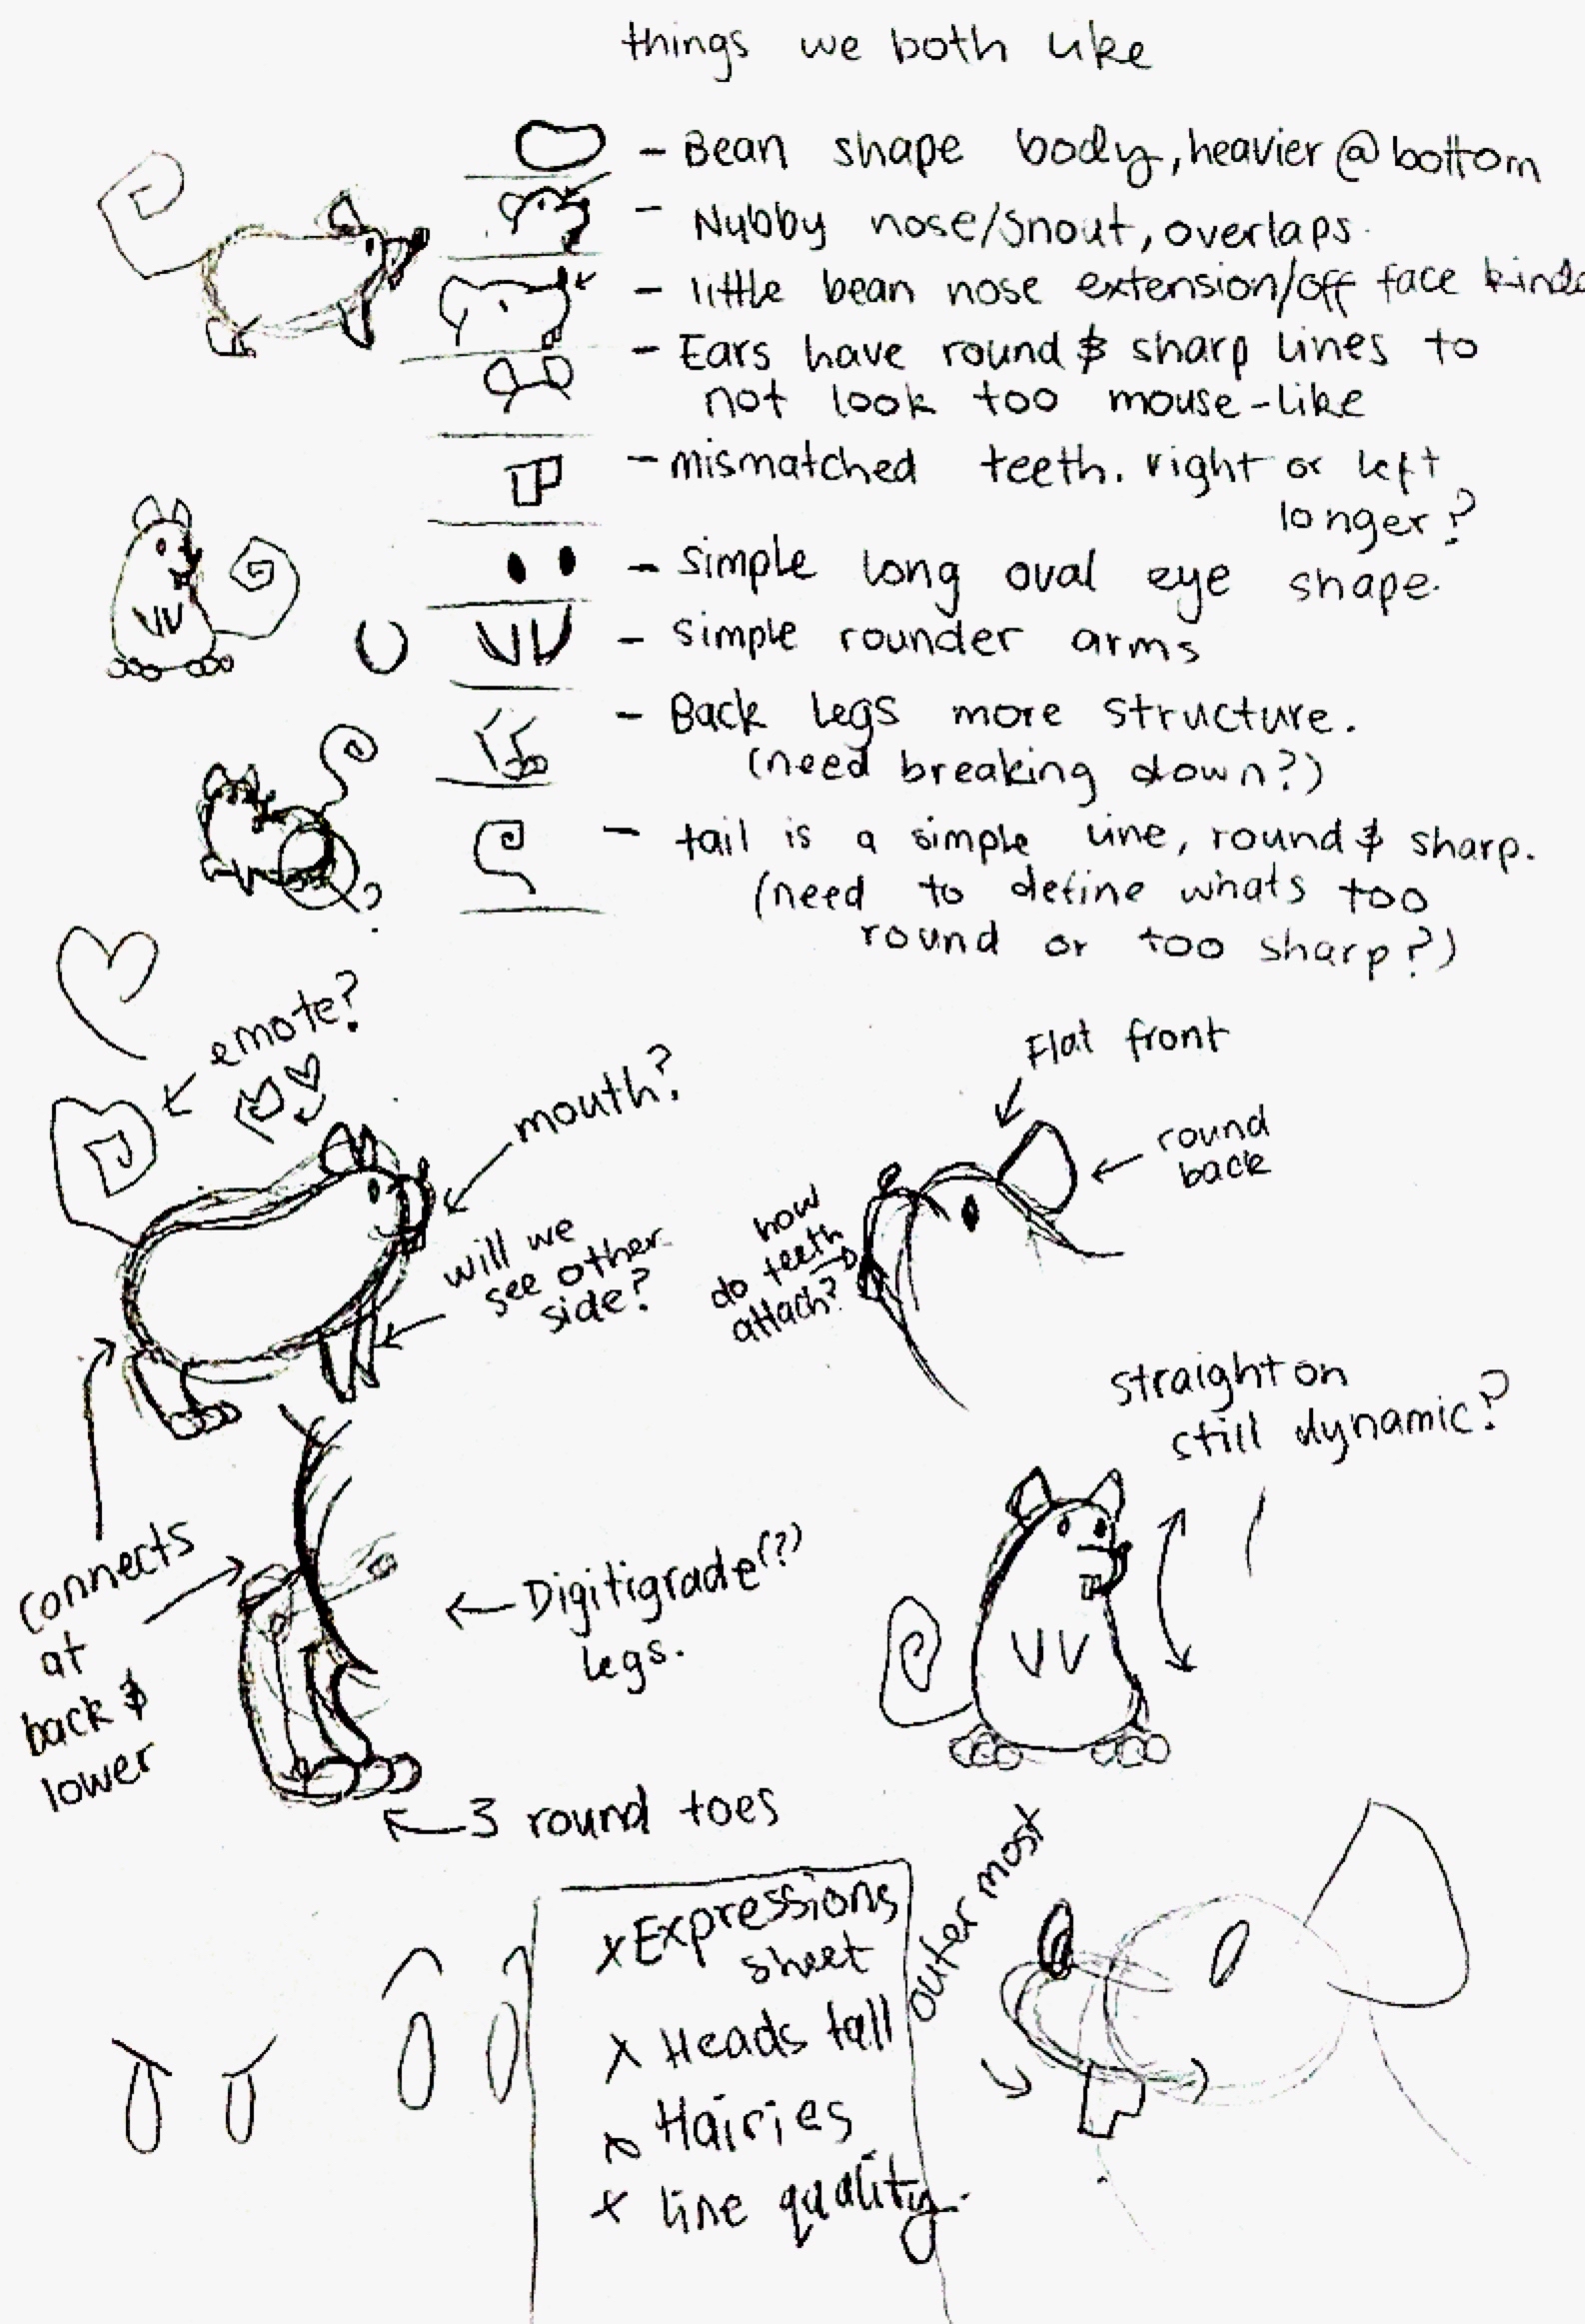 things we both like
- Bean shape body, heavier @ bottom
- Nubby nose/snout, overlaps.
- little bean nose extension/off face kinda
- Ears have round & sharp lines to
not look too mouse-like
- mismatched teeth. right or left
longer?
- simple long oval eye shape.
- simple rounder arms
- Back legs more structure.
(need breaking down?)
- tail is a simple line, round & sharp.
(need to define whats too
round or too sharp?)
?
emote?
mouth?
will we
see other
side?
Flat front
round
back
how
do teeth
attach?
straight on
still dynamic?
connects
at
back &
lower
Digitigrade(?)
legs.
3 round toes
x Expressions
sheet
x Heads tall
x Hairies
x line quality.
outer most